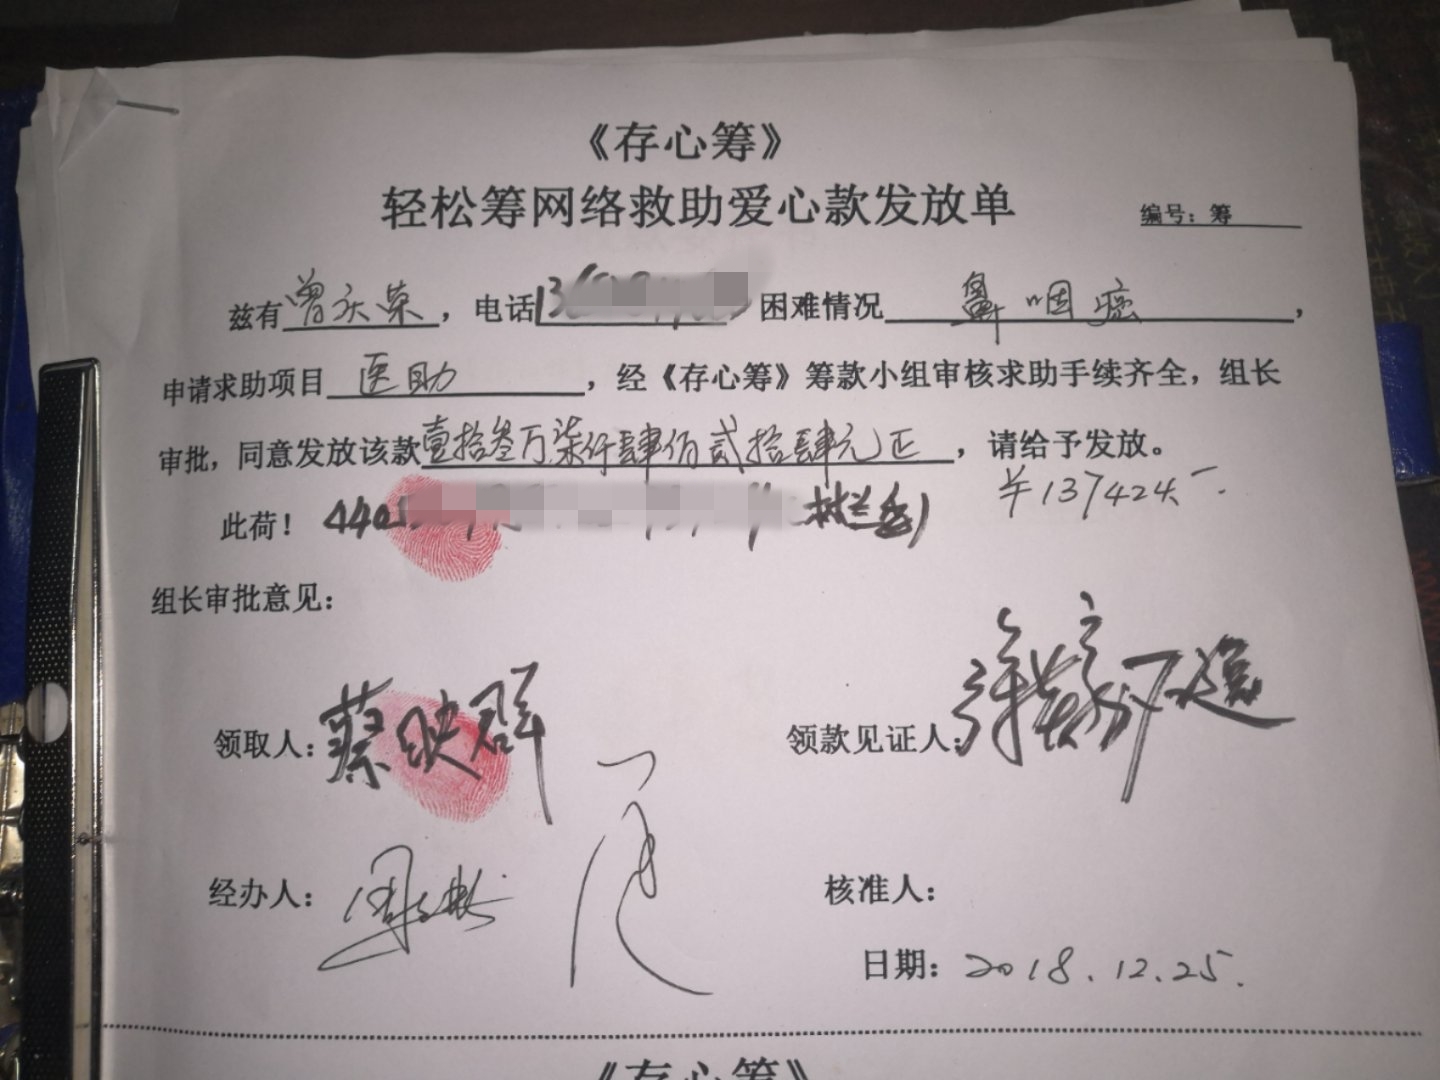 《存心筹》
轻松筹网络救助爱心款发放单
编号：筹
兹有曾庆荣，电话13 困难情况鼻咽癌，
申请求助项目医助，经《存心筹》筹款小组审核求助手续齐全，组长
审批，同意发放该款壹拾叁万柒仟肆佰贰拾肆元正，请给予发放。
￥137424.-
此荷！ 440
组长审批意见：
领取人：蔡映群 领款见证人：
经办人： 核准人：
日期：2018.12.25.
《存心筹》